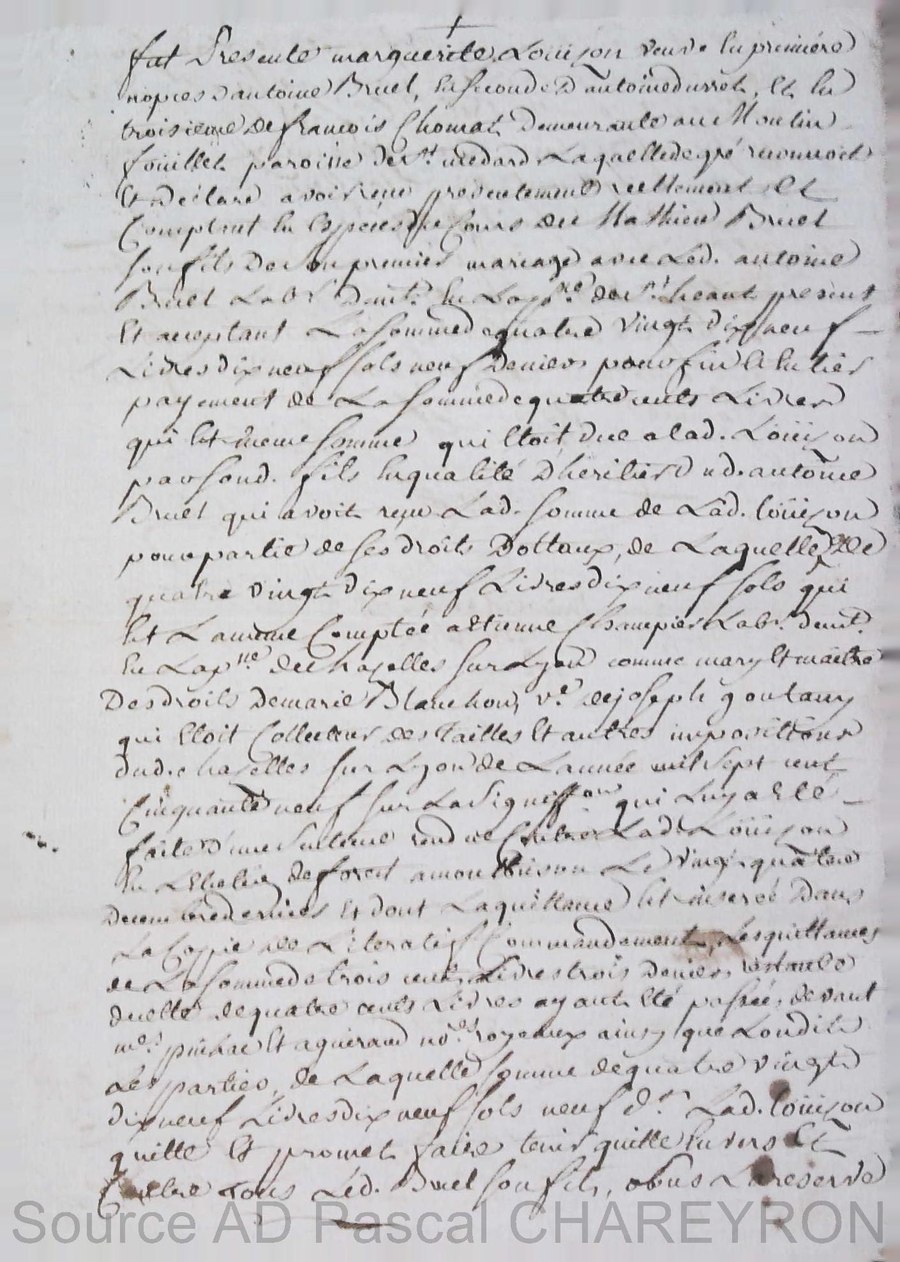 fut Presente marguerite Loüison veuve en première
nopces d'antoine Bruel, en seconde d'antoine durret, Et en
troisieme de francois Chomat demeurante au Moulin
fouillet paroisse de st. medard Laquelle de gré reconnoit
Et déclare avoir reçu présentement réellement Et
Comptant en Espèces de Cours de Mathieu Bruel
son fils de son premier mariage avec Led. antoine
Bruel Labr. demt. en La psse. de st. heant présent
Et acceptant La somme de quatre vingt dix neuf
Livres dix neuf sols neuf deniers pour fin & entier
payement de La somme de quatre cents Livres
qui Est même somme qui Etoit due a lad. Loüison
par sond. fils en qualité d'héritier dud. antoine
Bruel qui avoit reçu Lad. somme de Lad. Loüison
pour partie de ses droits Dottaux, de Laquelle de
quatre vingt dix neuf Livres dix neuf sols qui
Est La même Comptée a Etienne Champier Labr. demt.
en La psse. de Chazelles sur Lyon comme mary Et maitre
Des droits de marie Blanchon, ve. de joseph goutany
qui Etoit Collecteur des Tailles Et autres impositions
dud. chazelles sur Lyon de L'année mil sept cent
Cinquante neuf sur La Signiffon. qui Luy a Eté
faite d'une sentence rendue Contre Lad. Loüison
En L'Election de forest a montbrison Le vingt quatre
décembre dernier Et dont La quittance Est inserée dans
La Coppie de L'iteratif Commandement, Les quittances
de La somme de trois cents Livres trois deniers restante
d'celle de quatre cents Livres ayant Eté passées devant
mes. pinhac Et aguiraud nores. royeaux ainsy que L'ont dit
Les parties, de Laquelle somme de quatre vingt
dix neuf Livres dix neuf sols neuf ds. Lad. Loüison
quitte Et promet faire tenir quitte Envers Et
Contre tous Led. Bruel son fils, sous La reserve
Source AD Pascal CHAREYRON